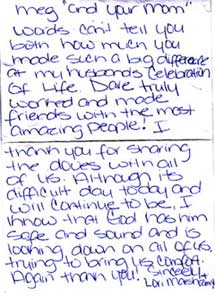 meg "and your mom"
words can't tell you
both how much you
made such a big difference
at my husbands Celebration
Of Life. Dave truly
worked and made
friends with the most
amazing people! I
thank you for sharing
the doves with all
of us. Although its
difficult day today and
will continue to be, I
know that God has him
safe and sound and is
looking down on all of us
trying to bring us comfort.
Again thank you! Sincerely,
Lori Marsha